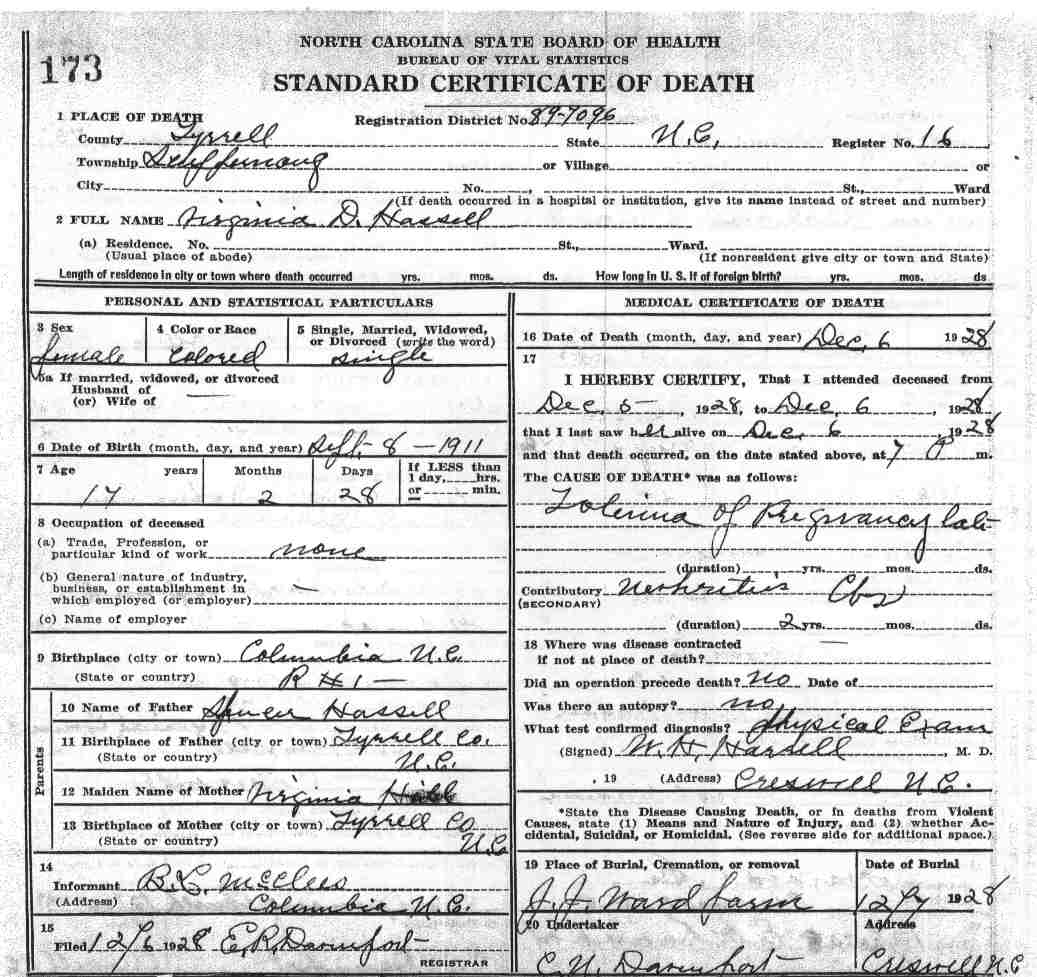 173
NORTH CAROLINA STATE BOARD OF HEALTH
BUREAU OF VITAL STATISTICS
STANDARD CERTIFICATE OF DEATH
1 PLACE OF DEATH
Registration District No. 89-7096
County Tyrrell State N.C. Register No. 16
Township or Village or
City No. , St., Ward
(If death occurred in a hospital or institution, give its name instead of street and number)
2 FULL NAME Virginia D. Hassell
(a) Residence. No. St., Ward.
(Usual place of abode) (If nonresident give city or town and State)
Length of residence in city or town where death occurred yrs. mos. ds. How long in U. S. if of foreign birth? yrs. mos. ds
PERSONAL AND STATISTICAL PARTICULARS
3 Sex
female
4 Color or Race
Colored
5 Single, Married, Widowed,
or Divorced (write the word)
Single
5a If married, widowed, or divorced
Husband of
(or) Wife of —
6 Date of Birth (month, day, and year) Sept. 8 - 1911
7 Age years Months Days If LESS than
1 day, hrs.
or min.
17 2 28
8 Occupation of deceased
(a) Trade, Profession, or
particular kind of work none
(b) General nature of industry,
business, or establishment in
which employed (or employer) —
(c) Name of employer
9 Birthplace (city or town) Columbia N.C.
(State or country) R #1 -
Parents
10 Name of Father Hassell
11 Birthplace of Father (city or town) Tyrrell Co.
(State or country) N.C.
12 Maiden Name of Mother Virginia
13 Birthplace of Mother (city or town) Tyrrell Co
(State or country) N.C
14
Informant B.L. McClees
(Address) Columbia N.C.
15
Filed 12/6 1928 E.R. Davenport
REGISTRAR
MEDICAL CERTIFICATE OF DEATH
16 Date of Death (month, day, and year) Dec. 6 1928
17
I HEREBY CERTIFY, That I attended deceased from
Dec. 5 - , 1928, to Dec. 6 , 1928
that I last saw her alive on Dec. 6 , 1928
and that death occurred, on the date stated above, at 7 P m.
The CAUSE OF DEATH* was as follows:
of Pregnancy
(duration) , yrs. mos. ds.
Contributory
(SECONDARY)
(duration) 2 yrs. mos. ds.
18 Where was disease contracted
if not at place of death? —
Did an operation precede death? no Date of
Was there an autopsy? no
What test confirmed diagnosis? Physical Exam
(Signed) W. H. Harrell , M. D.
, 19 (Address) Creswell N.C.
*State the Disease Causing Death, or in deaths from Violent
Causes, state (1) Means and Nature of Injury, and (2) whether Ac-
cidental, Suicidal, or Homicidal. (See reverse side for additional space.)
19 Place of Burial, Cremation, or removal
J. J. Ward farm
Date of Burial
12/7 1928
20 Undertaker
C.N. Davenport
Address
Creswell N.C